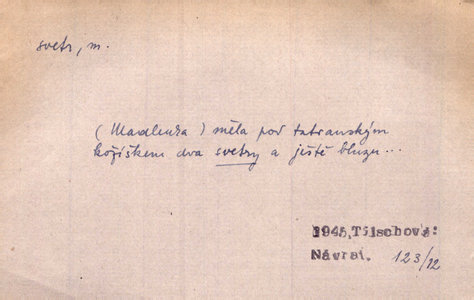 svetr, m.
(Madlenka) měla pod tatranským
kožíškem dva svetry a ještě bluzu...
1945, Tilschová:
Návrat. 123/12